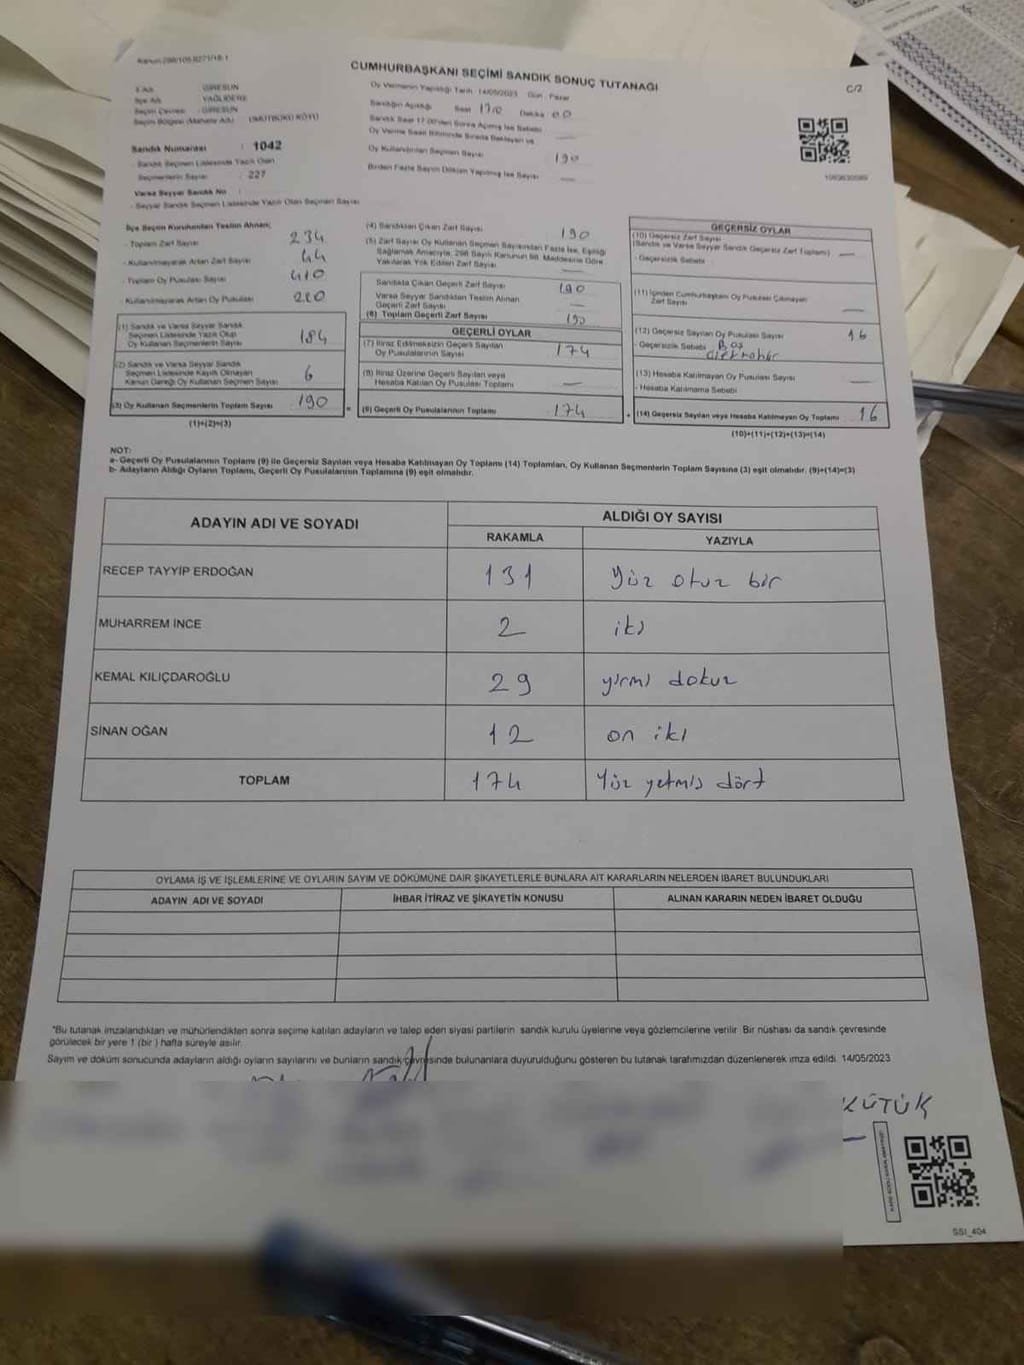 Kanun:298/105 8271/18.1
CUMHURBAŞKANI SEÇİMİ SANDIK SONUÇ TUTANAĞI
C/2
İl Adı : GİRESUN
İlçe Adı : YAĞLIDERE
Seçim Çevresi : GİRESUN
Seçim Bölgesi (Mahalle Adı)
Sandık Numarası : 1042
- Sandık Seçmen Listesinde Yazılı Olan
Seçmenlerin Sayısı : 227
Varsa Seyyar Sandık No :
- Seyyar Sandık Seçmen Listesinde Yazılı Olan Seçmen Sayısı
Oy Vermenin Yapıldığı Tarih 14/05/2023 Gün : Pazar
Sandığın Açıldığı Saat 17.0 Dakika 00
Sandık Saat 17.00'den Sonra Açılmış İse Sebebi
Oy Verme Saati Bitiminde Sırada Bekleyen ve
Oy Kullandırılan Seçmen Sayısı 190
Birden Fazla Sayım Döküm Yapılmış İse Sayısı
İlçe Seçim Kurulundan Teslim Alınan;
- Toplam Zarf Sayısı 234
- Kullanılmayarak Artan Zarf Sayısı 44
- Toplam Oy Pusulası Sayısı 410
- Kullanılmayarak Artan Oy Pusulası 220
(1) Sandık ve Varsa Seyyar Sandık
Seçmen Listesinde Yazılı Olup
Oy Kullanan Seçmenlerin Sayısı 184
(2) Sandık ve Varsa Seyyar Sandık
Seçmen Listesinde Kayıtlı Olmayan
Kanun Gereği Oy Kullanan Seçmen Sayısı 6
(3) Oy Kullanan Seçmenlerin Toplam Sayısı 190
(1)+(2)=(3)
(4) Sandıktan Çıkan Zarf Sayısı 190
(5) Zarf Sayısı Oy Kullanan Seçmen Sayısından Fazla İse, Eşitliği
Sağlamak Amacıyla, 298 Sayılı Kanunun 98. Maddesine Göre
Yakılarak Yok Edilen Zarf Sayısı
Sandıkta Çıkan Geçerli Zarf Sayısı 190
Varsa Seyyar Sandıktan Teslim Alınan
Geçerli Zarf Sayısı
(6) Toplam Geçerli Zarf Sayısı 190
GEÇERLİ OYLAR
(7) İtiraz Edilmeksizin Geçerli Sayılan
Oy Pusulalarının Sayısı 174
(8) İtiraz Üzerine Geçerli Sayılan veya
Hesaba Katılan Oy Pusulası Toplamı
= (9) Geçerli Oy Pusulalarının Toplamı 174
GEÇERSİZ OYLAR
(10) Geçersiz Zarf Sayısı
(Sandık ve Varsa Seyyar Sandık Geçersiz Zarf Toplamı)
- Geçersizlik Sebebi
(11) İçinden Cumhurbaşkanı Oy Pusulası Çıkmayan
Zarf Sayısı
(12) Geçersiz Sayılan Oy Pusulası Sayısı 16
- Geçersizlik Sebebi
(13) Hesaba Katılmayan Oy Pusulası Sayısı
- Hesaba Katılmama Sebebi
+ (14) Geçersiz Sayılan veya Hesaba Katılmayan Oy Toplamı 16
(10)+(11)+(12)+(13)=(14)
NOT:
a- Geçerli Oy Pusulalarının Toplamı (9) ile Geçersiz Sayılan veya Hesaba Katılmayan Oy Toplamı (14) Toplamları, Oy Kullanan Seçmenlerin Toplam Sayısına (3) eşit olmalıdır. (9)+(14)=(3)
b- Adayların Aldığı Oyların Toplamı, Geçerli Oy Pusulalarının Toplamına (9) eşit olmalıdır.
ADAYIN ADI VE SOYADI
ALDIĞI OY SAYISI
RAKAMLA YAZIYLA
RECEP TAYYİP ERDOĞAN 131 Yüz otuz bir
MUHARREM İNCE 2 iki
KEMAL KILIÇDAROĞLU 29 yirmi dokuz
SİNAN OĞAN 12 on iki
TOPLAM 174 Yüz yetmiş dört
OYLAMA İŞ VE İŞLEMLERİNE VE OYLARIN SAYIM VE DÖKÜMÜNE DAİR ŞİKAYETLERLE BUNLARA AİT KARARLARIN NELERDEN İBARET BULUNDUKLARI
ADAYIN ADI VE SOYADI İHBAR İTİRAZ VE ŞİKAYETİN KONUSU ALINAN KARARIN NEDEN İBARET OLDUĞU
*Bu tutanak imzalandıktan ve mühürlendikten sonra seçime katılan adayların ve talep eden siyasi partilerin sandık kurulu üyelerine veya gözlemcilerine verilir. Bir nüshası da sandık çevresinde
görülecek bir yere 1 (bir) hafta süreyle asılır.
Sayım ve döküm sonucunda adayların aldığı oyların sayılarını ve bunların sandık çevresinde bulunanlara duyurulduğunu gösteren bu tutanak tarafımızdan düzenlenerek imza edildi. 14/05/2023
KÜTÜK
SSI_404